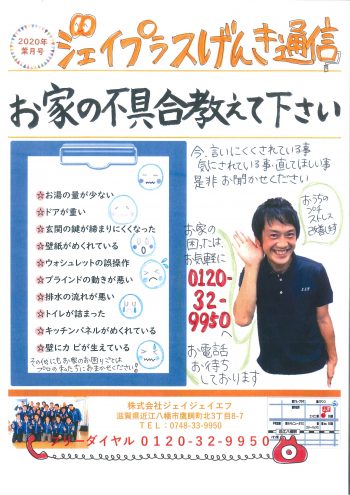 2020年
葉月号
ジェイプラスげんき通信
お家の不具合教えて下さい
今、言いにくくされている事
気にされている事・直してほしい事
是非お聞かせください
☆お湯の量が少ない
☆ドアが重い
☆玄関の鍵が締まりにくくなった
☆壁紙がめくれている
☆ウォシュレットの誤操作
☆ブラインドの動きが悪い
☆排水の流れが悪い
☆トイレが詰まった
☆キッチンパネルがめくれている
☆壁にカビが生えている
その他にもお家のお困りごとは
プロの私たちにおまかせください
お家の
困ったは、
お気軽に
0120-
32-
9950へ
お電話
お待ち
しております
おうちの
プチ
ストレス
改善します
株式会社ジェイジェイエフ
滋賀県近江八幡市鷹飼町北3丁目8-7
TEL：0748-33-9950
フリーダイヤル 0120-32-9950